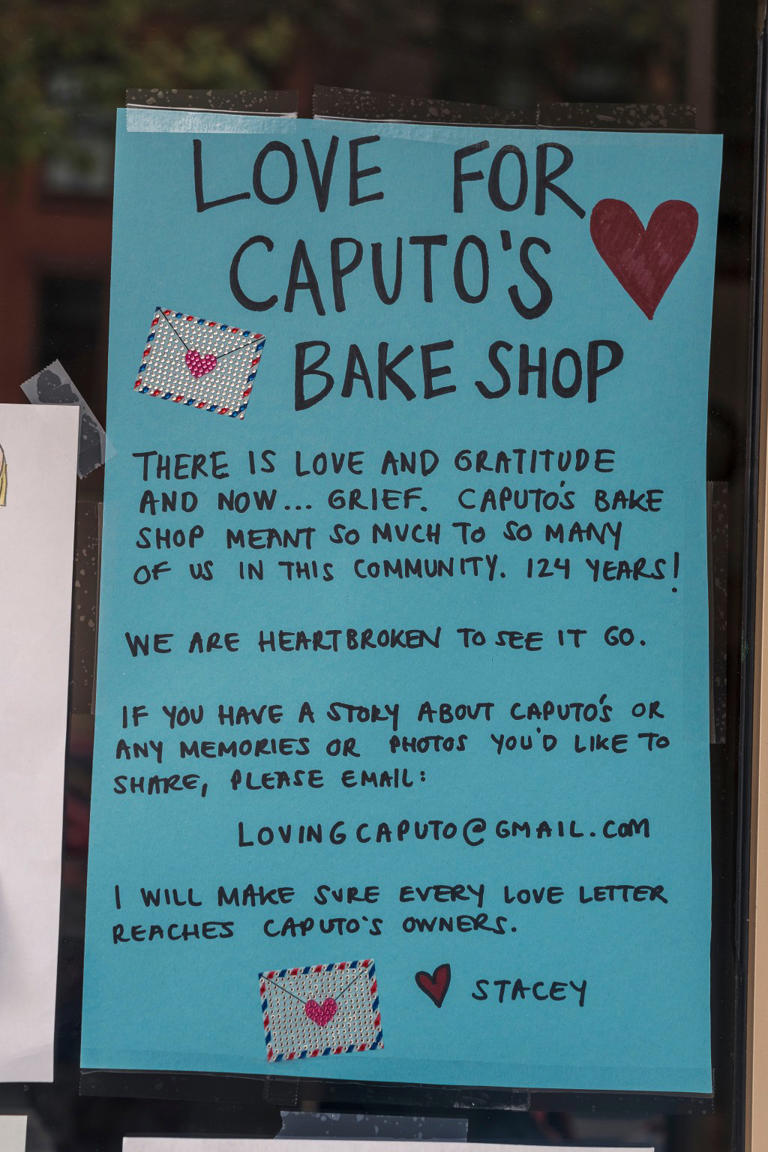 LOVE FOR
CAPUTO'S
BAKE SHOP
THERE IS LOVE AND GRATITUDE
AND NOW... GRIEF. CAPUTO'S BAKE
SHOP MEANT SO MUCH TO SO MANY
OF US IN THIS COMMUNITY. 124 YEARS!
WE ARE HEARTBROKEN TO SEE IT GO.
IF YOU HAVE A STORY ABOUT CAPUTO'S OR
ANY MEMORIES OR PHOTOS YOU'D LIKE TO
SHARE, PLEASE EMAIL:
LOVINGCAPUTO@GMAIL.COM
I WILL MAKE SURE EVERY LOVE LETTER
REACHES CAPUTO'S OWNERS.
STACEY